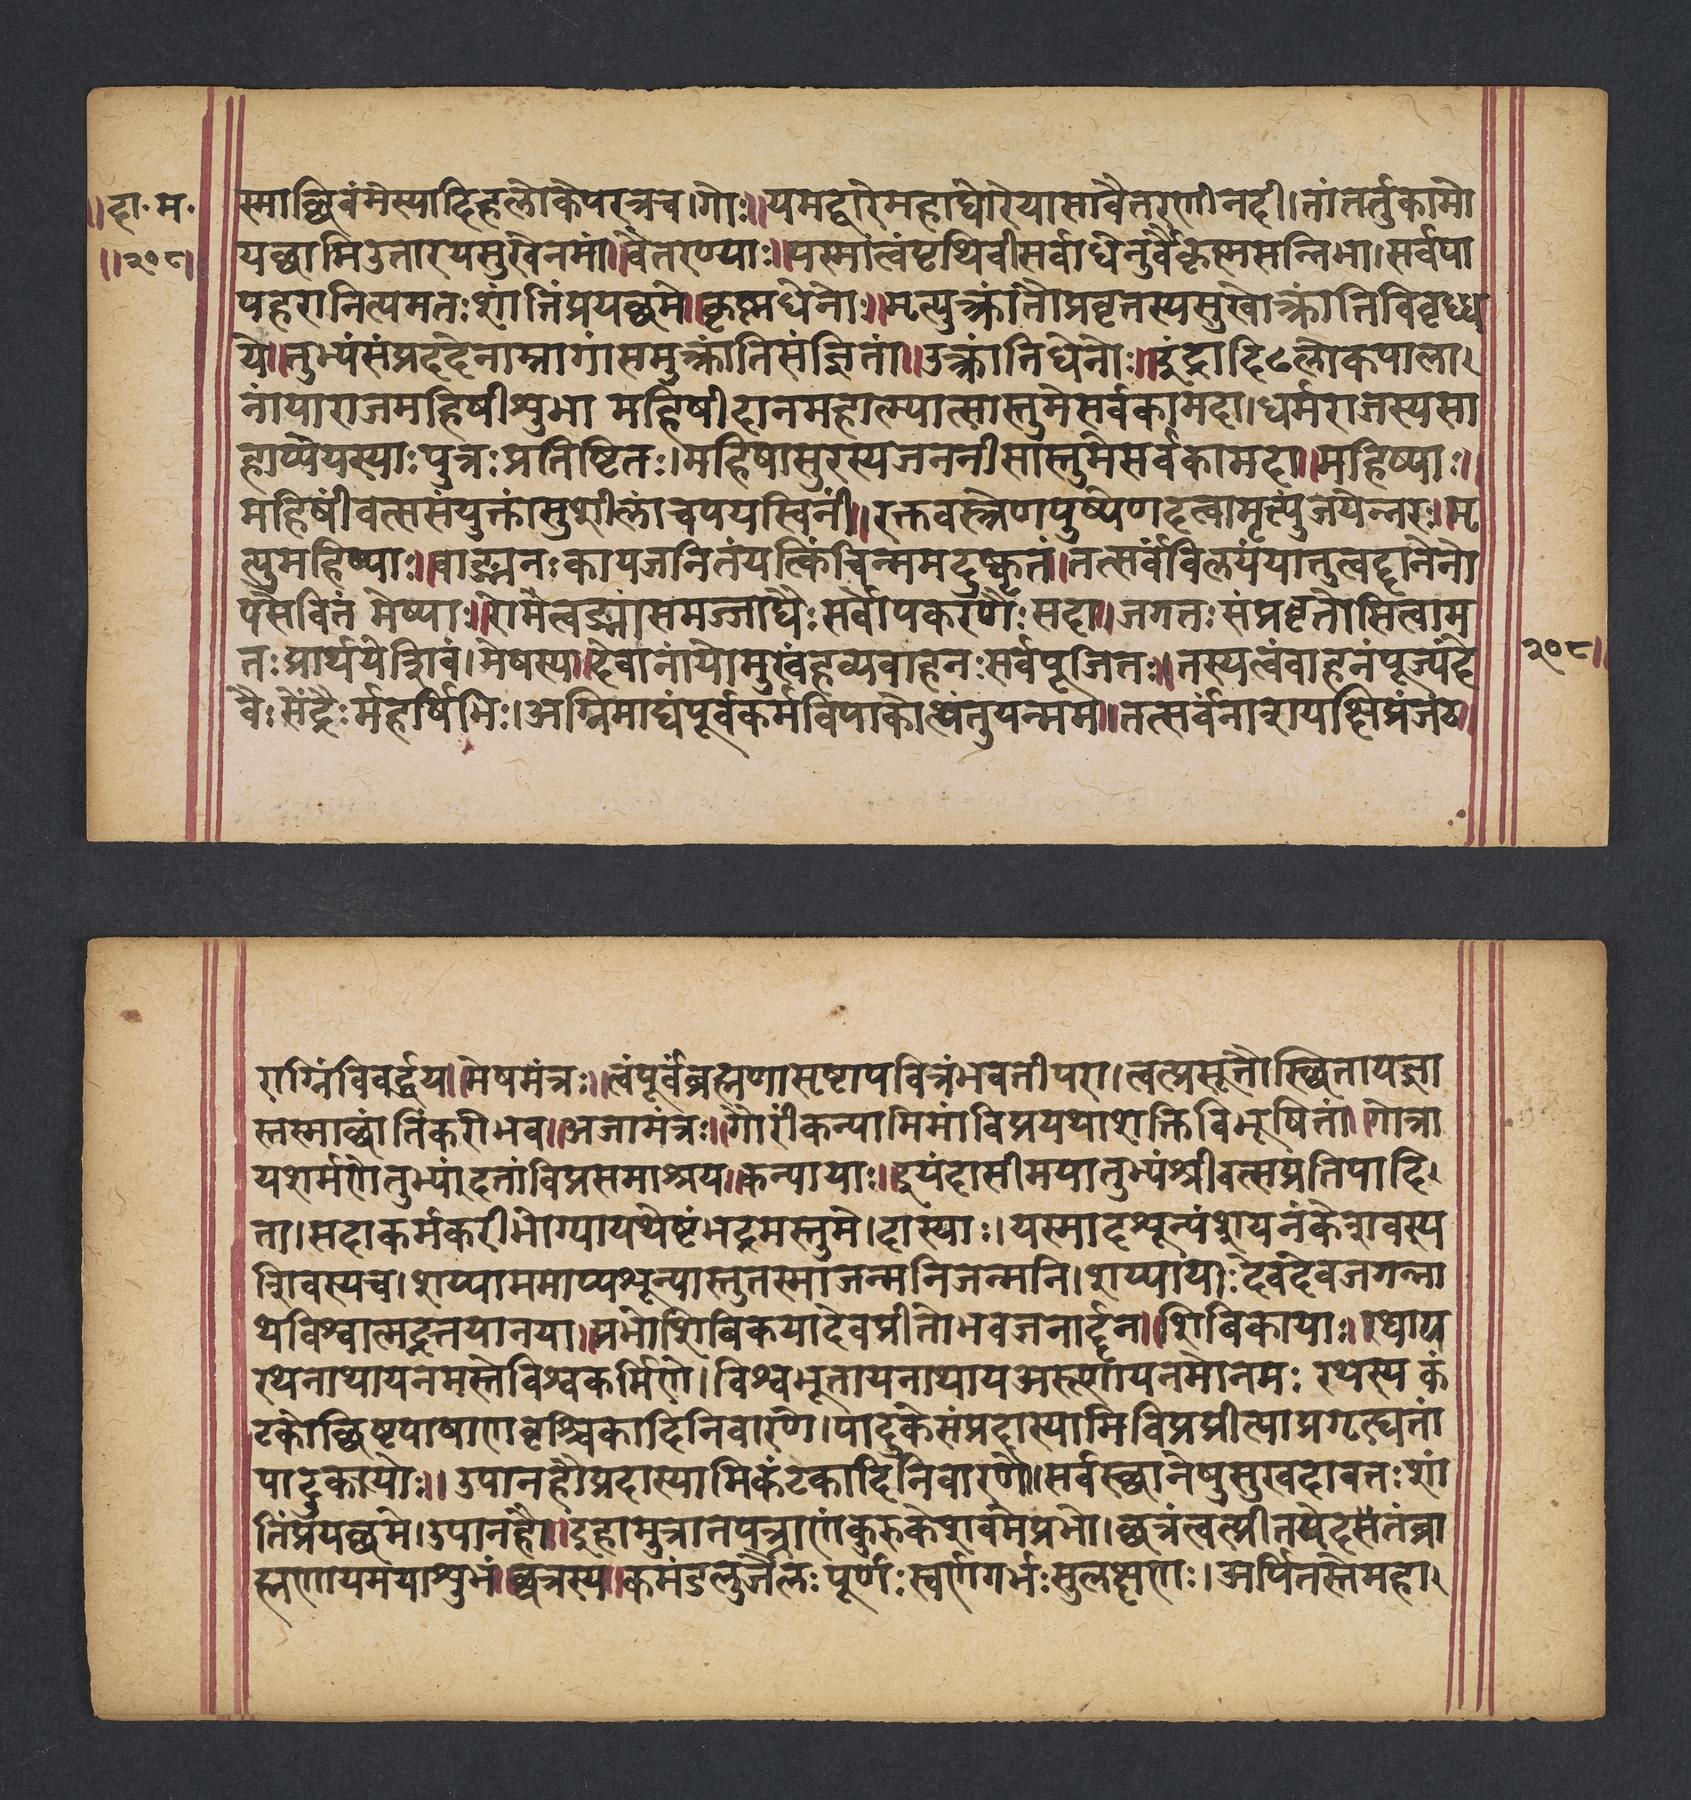 ॥दा॰म॰
॥२०८॥
स्माच्छिवंमेस्यादिहलोकेपरत्रच।गोः॥यमद्वारेमहाघोरेयासावैतरणीनदी।तांतर्तुकामो
यछामिउत्तारयसुखेनमां॥वैतरण्याः॥यस्मात्वंपृथिवीसर्वाधेनुर्वैकृस्मसन्निभा।सर्वपा
पहरानित्यमतःशांतिंप्रयछमे॥कृष्मधेनोः॥मृत्युत्क्रांतौप्रवृत्तस्यसुखोत्क्रांतिविवृध्ध
ये॥तुभ्यंसंप्रददेनाम्नागांसमुत्क्रांतिसंज्ञितां॥उत्क्रांतिधेनोः॥इंद्रादिलोकपाला
नांयाराजमहिषीशुभा महिषीदानमहात्म्यात्सास्तुमेसर्वकामदा।धर्मराजस्यसा
हाय्येयस्याःपुत्रःप्रतिष्टितः।महिषासुरस्यजननीसास्तुमेसर्वकामदा॥महिष्याः॥
महिषींवत्ससंयुक्तांसुशीलांचपयस्विनीं॥रक्तवस्त्रेणपुष्पेणदत्वामृत्युंजयेन्नरः॥मृ
त्युमहिष्याः॥वाङ्मनःकायजनितंयत्किंचिन्ममदुष्कृतं॥तत्सर्वंविलयंयातुत्वद्दानेनो
पसेवितं मेष्याः॥रोमत्वङ्मांसमज्जाद्यैःसर्वोपकरणैःसदा॥जगतःसंप्रवृत्तोसित्वाम
तःप्रार्थयेशिवं।मेषस्य॥देवानांयोमुखंहव्यवाहनःसर्वपूजितः॥तस्यत्वंवाहनंपूज्यंदे
वैःसेंद्रैःर्महर्षिभिः।अग्निमाद्यंपूर्वकर्मविपाकोत्थंतुयन्मम॥तत्सर्वंनाशयक्षिप्रंजठ॥
२०८॥
राग्निंविवर्द्धय॥मेषमंत्रः॥त्वंपूर्वंब्रह्मणासृष्टापवित्रंभवतीपरा।त्वत्प्रसूतौस्थितायज्ञा
स्तस्माछांतिंकरीभव॥अजामंत्रः॥गौरींकन्यामिमांविप्रयथाशक्तिविभूषितां॥गोत्रा
यशर्मणेतुभ्यांदत्तांविप्रसमाश्रय॥कन्यायाः॥इयंदासीमयातुभ्यंश्रीवत्सप्रतिपादि
ता।सदाकर्मकरीभोग्यायथेष्टंभद्रमस्तुमे।दास्याः।यस्मादशून्यंशयनंकेशवस्य
शिवस्यच।शय्याममाप्यशून्यास्तुतस्माजन्मनिजन्मनि।शय्यायाःदेवदेवजगन्ना
थविश्वात्मद्दत्तयानया॥प्रभोशिबिकयादेवप्रीतोभवजनार्द्दन॥शिबिकायाः॥रथाय
रथनाथायनमस्तेविश्वकर्मिणे।विश्वभूतायनाथायअरुणायनमोनमः रथस्य कं
टकोछिष्टपाषाणवृश्चिकादिनिवारणे।पादुकेसंप्रदास्यामिविप्रप्रीत्याप्रगृत्ह्यतां
पादुकायोः॥।उपानहौप्रदास्यामिकंटकादिनिवारणे॥सर्वस्छानेषुसुखदावतःशां
तिंप्रयछमे।उपानहौ॥इहामुत्रातपत्राणंकुरुकेशवमेप्रभो।छत्रंत्वत्प्रीतयेदत्तंब्रा
ह्मणायमयाशुभं॥छत्रस्य॥कमंडलुर्जलैःपूर्णःस्वर्णगर्भःसुलक्षणः।अर्पितस्तेमहा